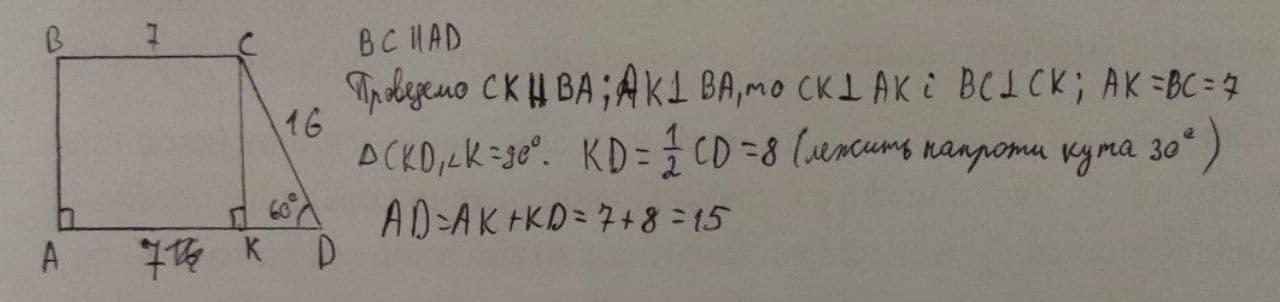 B 7 C
16
60°
A 7 K D
BC || AD
Проведемо CK || BA; AK⊥ BA, то CK⊥ AK і BC⊥CK; AK=BC=7
ΔCKD, ∠K=90°. KD = 1/2 CD = 8 (лежить напроти кута 30°)
AD=AK+KD=7+8=15